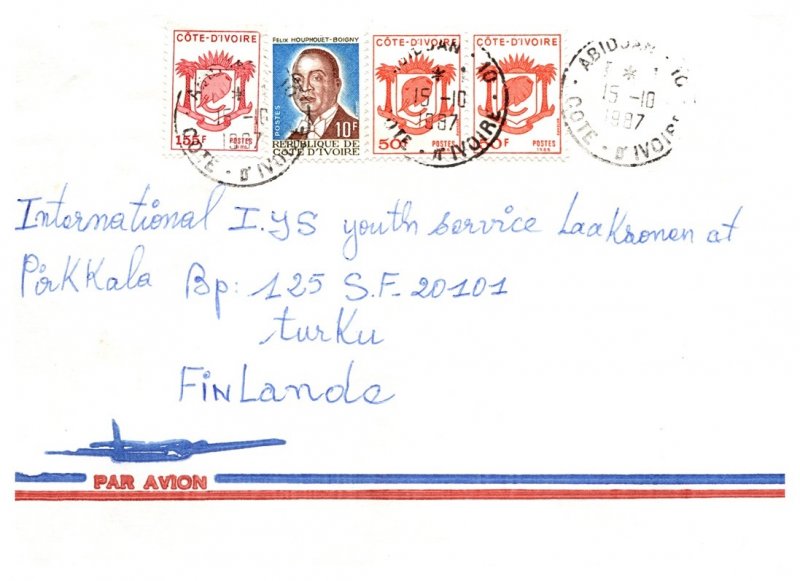 CÔTE-D'IVOIRE
155F POSTES
FELIX HOUPHOUET-BOIGNY
POSTES
10F
REPUBLIQUE DE
CÔTE D'IVOIRE
CÔTE-D'IVOIRE
50F POSTES
CÔTE-D'IVOIRE
50F POSTES
1987
COTE - D'IVOIRE
ABIDJAN 10
15-10
1987
COTE - D'IVOIRE
ABIDJAN 10
15-10
1987
COTE - D'IVOIRE
International I.YS youth service Laakronen at
PirKKala Bp: 125 S.F. 20101
turku
FiNLande
PAR AVION